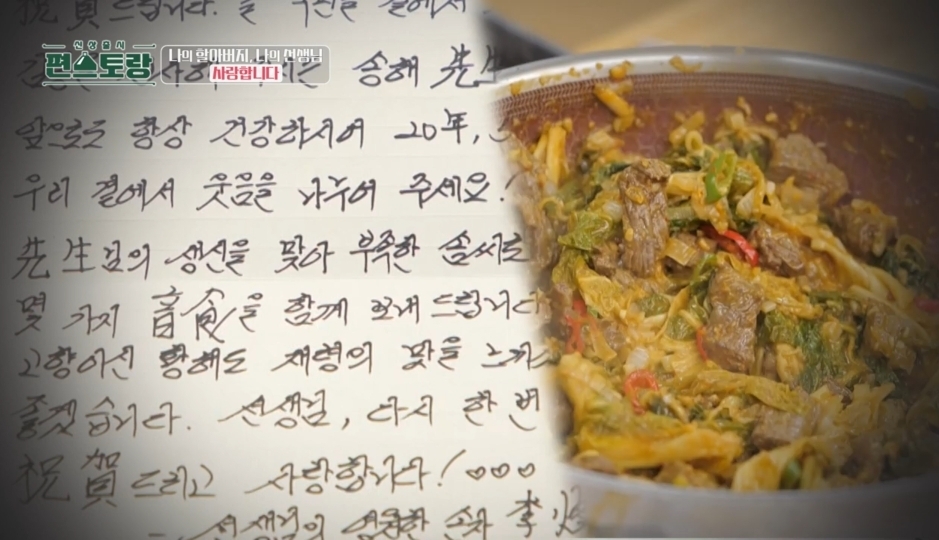 신상출시
편스토랑
나의 할아버지, 나의 선생님
사랑합니다
祝賀드립니다. 늘 곁에서
송해 先生
앞으로도 항상 건강하시어 20年,
우리 곁에서 웃음을 나누어 주세요!
先生님의 생신을 맞아 부족한 솜씨로
몇 가지 音食을 함께 보내드립니다
고향이신 황해도 재령의 맛을 느끼
좋겠습니다. 선생님, 다시 한 번
祝賀드리고 사랑합니다! ♡♡♡
- 선생님의 영원한 손자 李